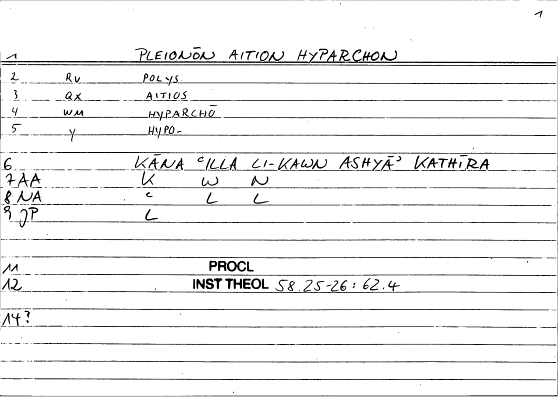 1
1 PLEIONŌN AITION HYPARCHON
2 RV POLYS
3 QX AITIOS
4 WM HYPARCHŌ
5 Y HYPO-
6 KĀNA ʿILLA LI-KAWN ASHYĀʾ KATHĪRA
7 AA K W N
8 NA ʿ L L
9 JP L
11 PROCL
12 INST THEOL 58.25-26 : 62.4
14?